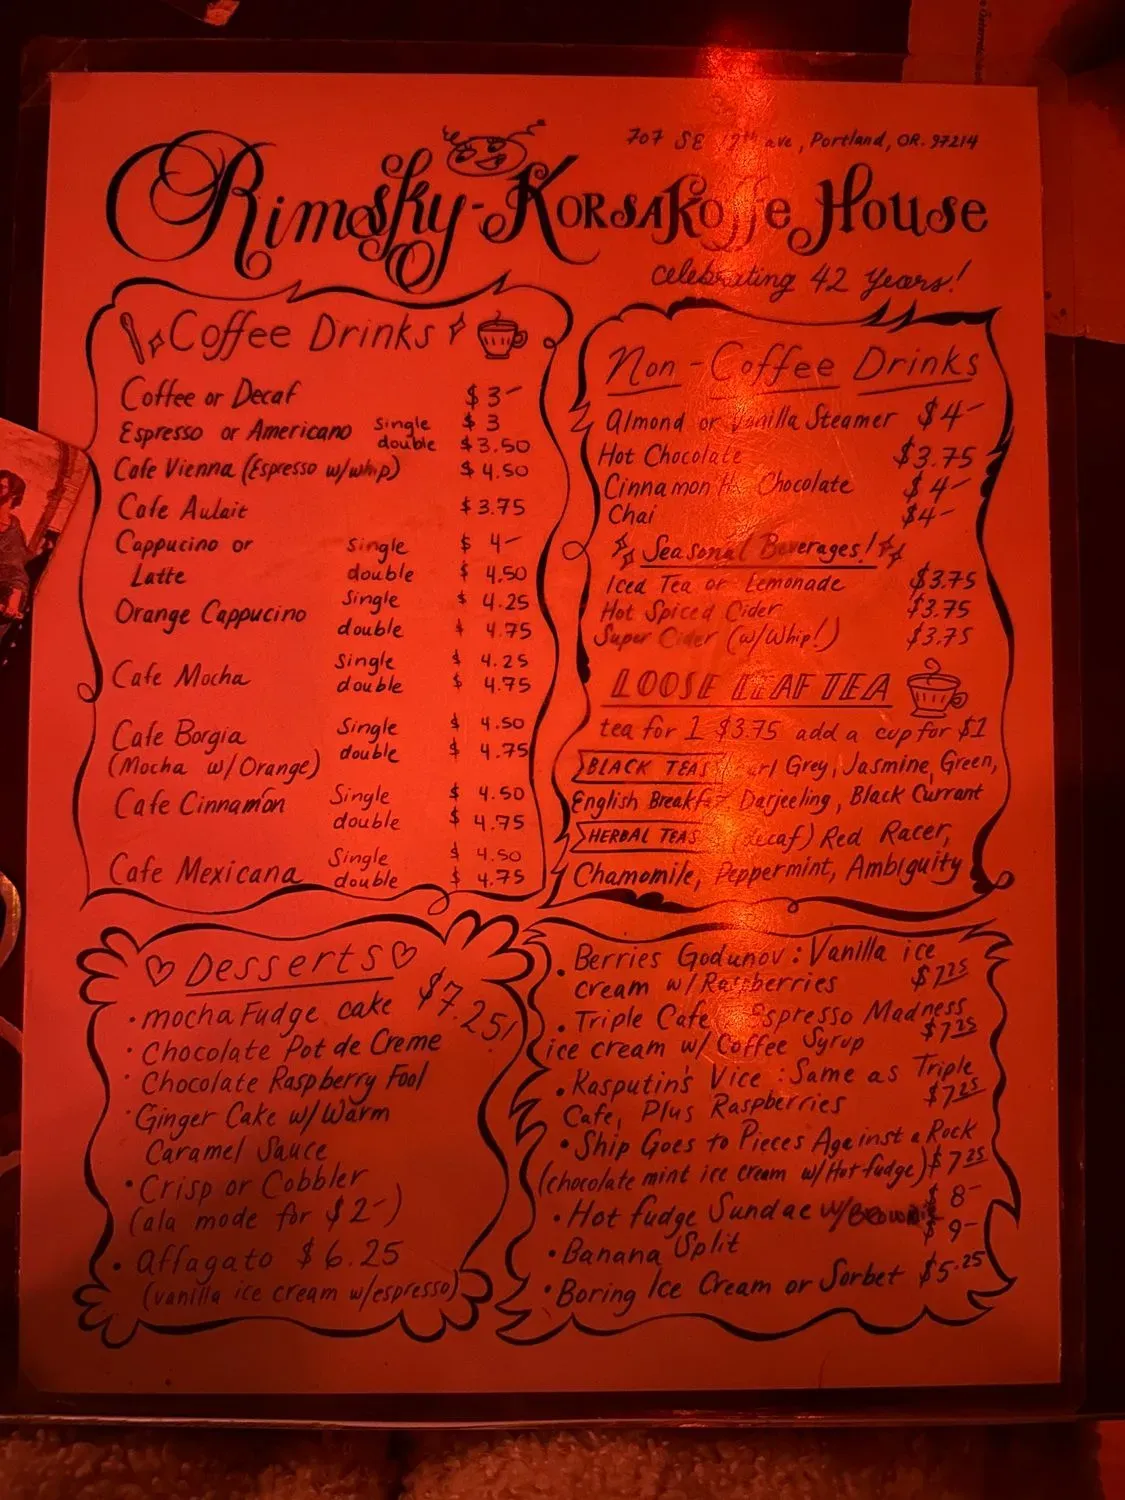 707 SE 12th ave, Portland, OR. 97214
Rimsky-Korsakoffee House
celebrating 42 years!
Coffee Drinks
Coffee or Decaf $3-
Espresso or Americano single $3
double $3.50
Cafe Vienna (Espresso w/whip) $4.50
Cafe Aulait $3.75
Cappucino or single $4-
Latte double $4.50
Orange Cappucino Single $4.25
double $4.75
Cafe Mocha Single $4.25
double $4.75
Cafe Borgia Single $4.50
(Mocha w/Orange) double $4.75
Cafe Cinnamon Single $4.50
double $4.75
Cafe Mexicana Single $4.50
double $4.75
Non-Coffee Drinks
Almond or Vanilla Steamer $4-
Hot Chocolate $3.75
Cinnamon Hot Chocolate $4-
Chai $4-
Seasonal Beverages!
Iced Tea or Lemonade $3.75
Hot Spiced Cider $3.75
Super Cider (w/Whip!) $3.75
LOOSE LEAF TEA
tea for 1 $3.75 add a cup for $1
BLACK TEAS Earl Grey, Jasmine, Green,
English Breakfast, Darjeeling, Black Currant
HERBAL TEAS (decaf) Red Racer,
Chamomile, Peppermint, Ambiguity
Desserts
• mocha Fudge cake $7.25/
• Chocolate Pot de Creme
• Chocolate Raspberry Fool
• Ginger Cake w/Warm
Caramel Sauce
• Crisp or Cobbler
(ala mode for $2-)
• Affagato $6.25
(vanilla ice cream w/espresso)
• Berries Godunov: Vanilla ice
cream w/Raspberries $7.25
• Triple Cafe: Espresso Madness
ice cream w/ Coffee Syrup $7.25
• Rasputin's Vice: Same as Triple
Cafe, Plus Raspberries $7.25
• Ship Goes to Pieces Against a Rock
(chocolate mint ice cream w/Hot fudge) $7.25
• Hot fudge Sundae w/Brownie $8-
• Banana Split $9-
• Boring Ice Cream or Sorbet $5.25